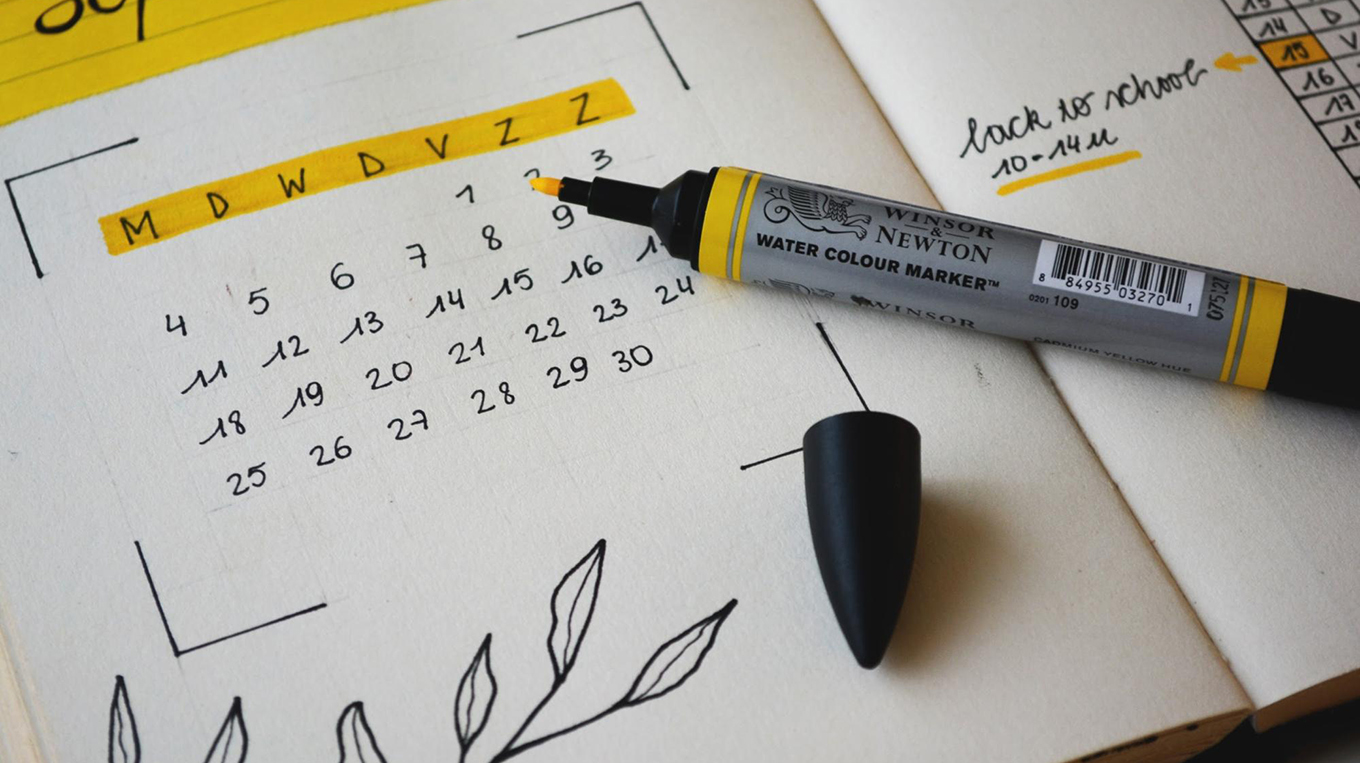 M D W D V Z Z
1 2 3
4 5 6 7 8 9
11 12 13 14 15 16
18 19 20 21 22 23 24
25 26 27 28 29 30
WINSOR
&
NEWTON
WATER COLOUR MARKER™
WINSOR
CADMIUM YELLOW HUE
8 84955 03270 1
0201 109
back to school
10-14u
14 D
15 V
16
17